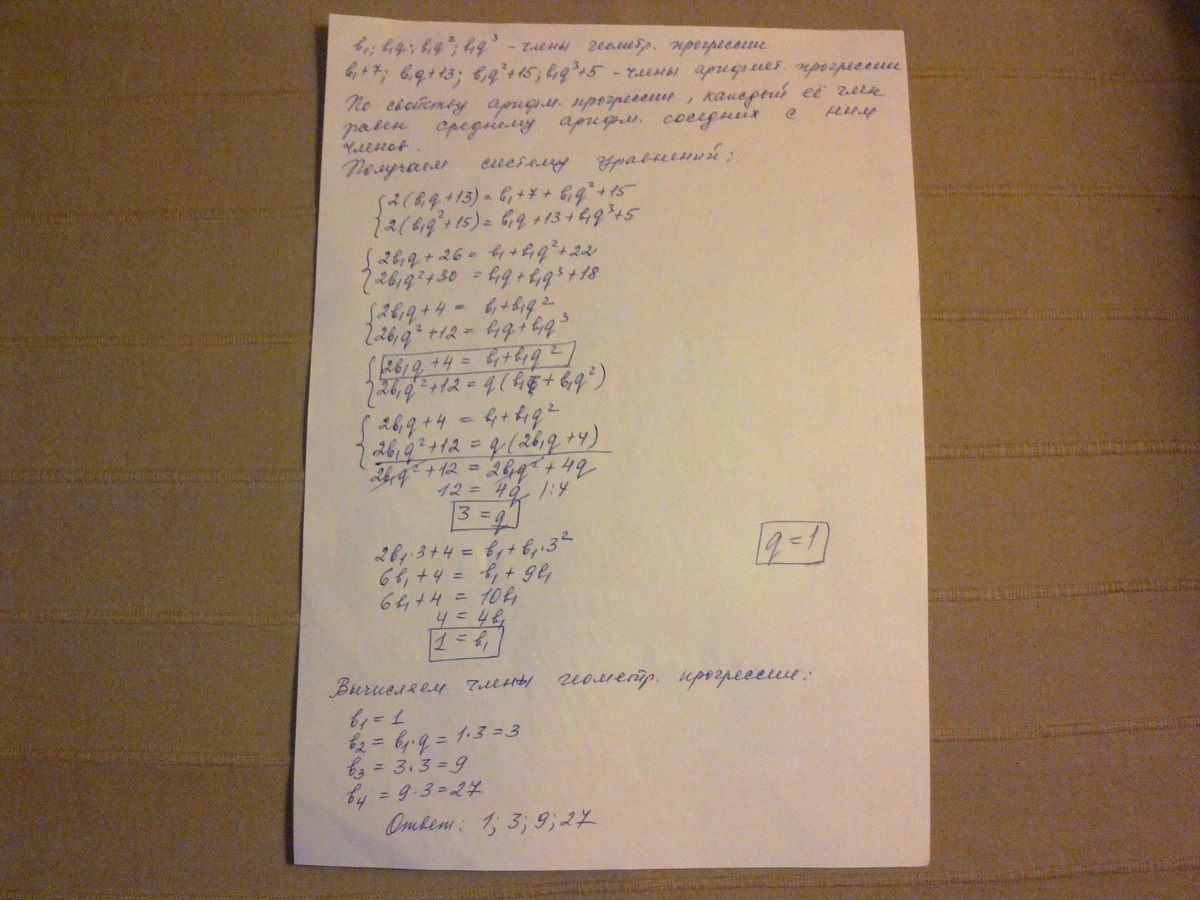 b₁; b₁q; b₁q²; b₁q³ - члены геометр. прогрессии
b₁+7; b₁q+13; b₁q²+15; b₁q³+5 - члены арифмет. прогрессии
По свойству арифм. прогрессии, каждый её член
равен среднему арифм. соседних с ним
членов.
Получаем систему уравнений:
{2(b₁q+13) = b₁+7+b₁q²+15
{2(b₁q²+15) = b₁q+13+b₁q³+5
{2b₁q+26 = b₁+b₁q²+22
{2b₁q²+30 = b₁q+b₁q³+18
{2b₁q+4 = b₁+b₁q²
{2b₁q²+12 = b₁q+b₁q³
{2b₁q+4 = b₁+b₁q²
{2b₁q²+12 = q(b₁+b₁q²)
{2b₁q+4 = b₁+b₁q²
{2b₁q²+12 = q(2b₁q+4)
2b₁q²+12 = 2b₁q²+4q
12 = 4q /:4
3 = q
q = 1
2b₁·3+4 = b₁+b₁·3²
6b₁+4 = b₁+9b₁
6b₁+4 = 10b₁
4 = 4b₁
1 = b₁
Вычисляем члены геометр. прогрессии:
b₁ = 1
b₂ = b₁·q = 1·3 = 3
b₃ = 3·3 = 9
b₄ = 9·3 = 27
Ответ: 1; 3; 9; 27